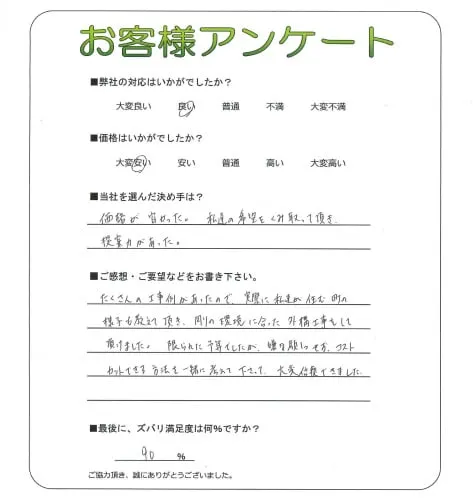 お客様アンケート
■弊社の対応はいかがでしたか？
大変良い 良い 普通 不満 大変不満
■価格はいかがでしたか？
大変安い 安い 普通 高い 大変高い
■当社を選んだ決め手は？
価格が安かった。 私達の希望をくみ取って頂き
提案力があった。
■ご感想・ご要望などをお書き下さい。
たくさんの工事例があったので、実際に私達が住む町の
様子も教えて頂き、周りの環境に合った外構工事をして
頂けました。 限られた予算でしたが、
カットできる方法を一緒に考えて下さって、大変信頼できました
■最後に、ズバリ満足度は何%ですか？
90 %
ご協力頂き、誠にありがとうございました。